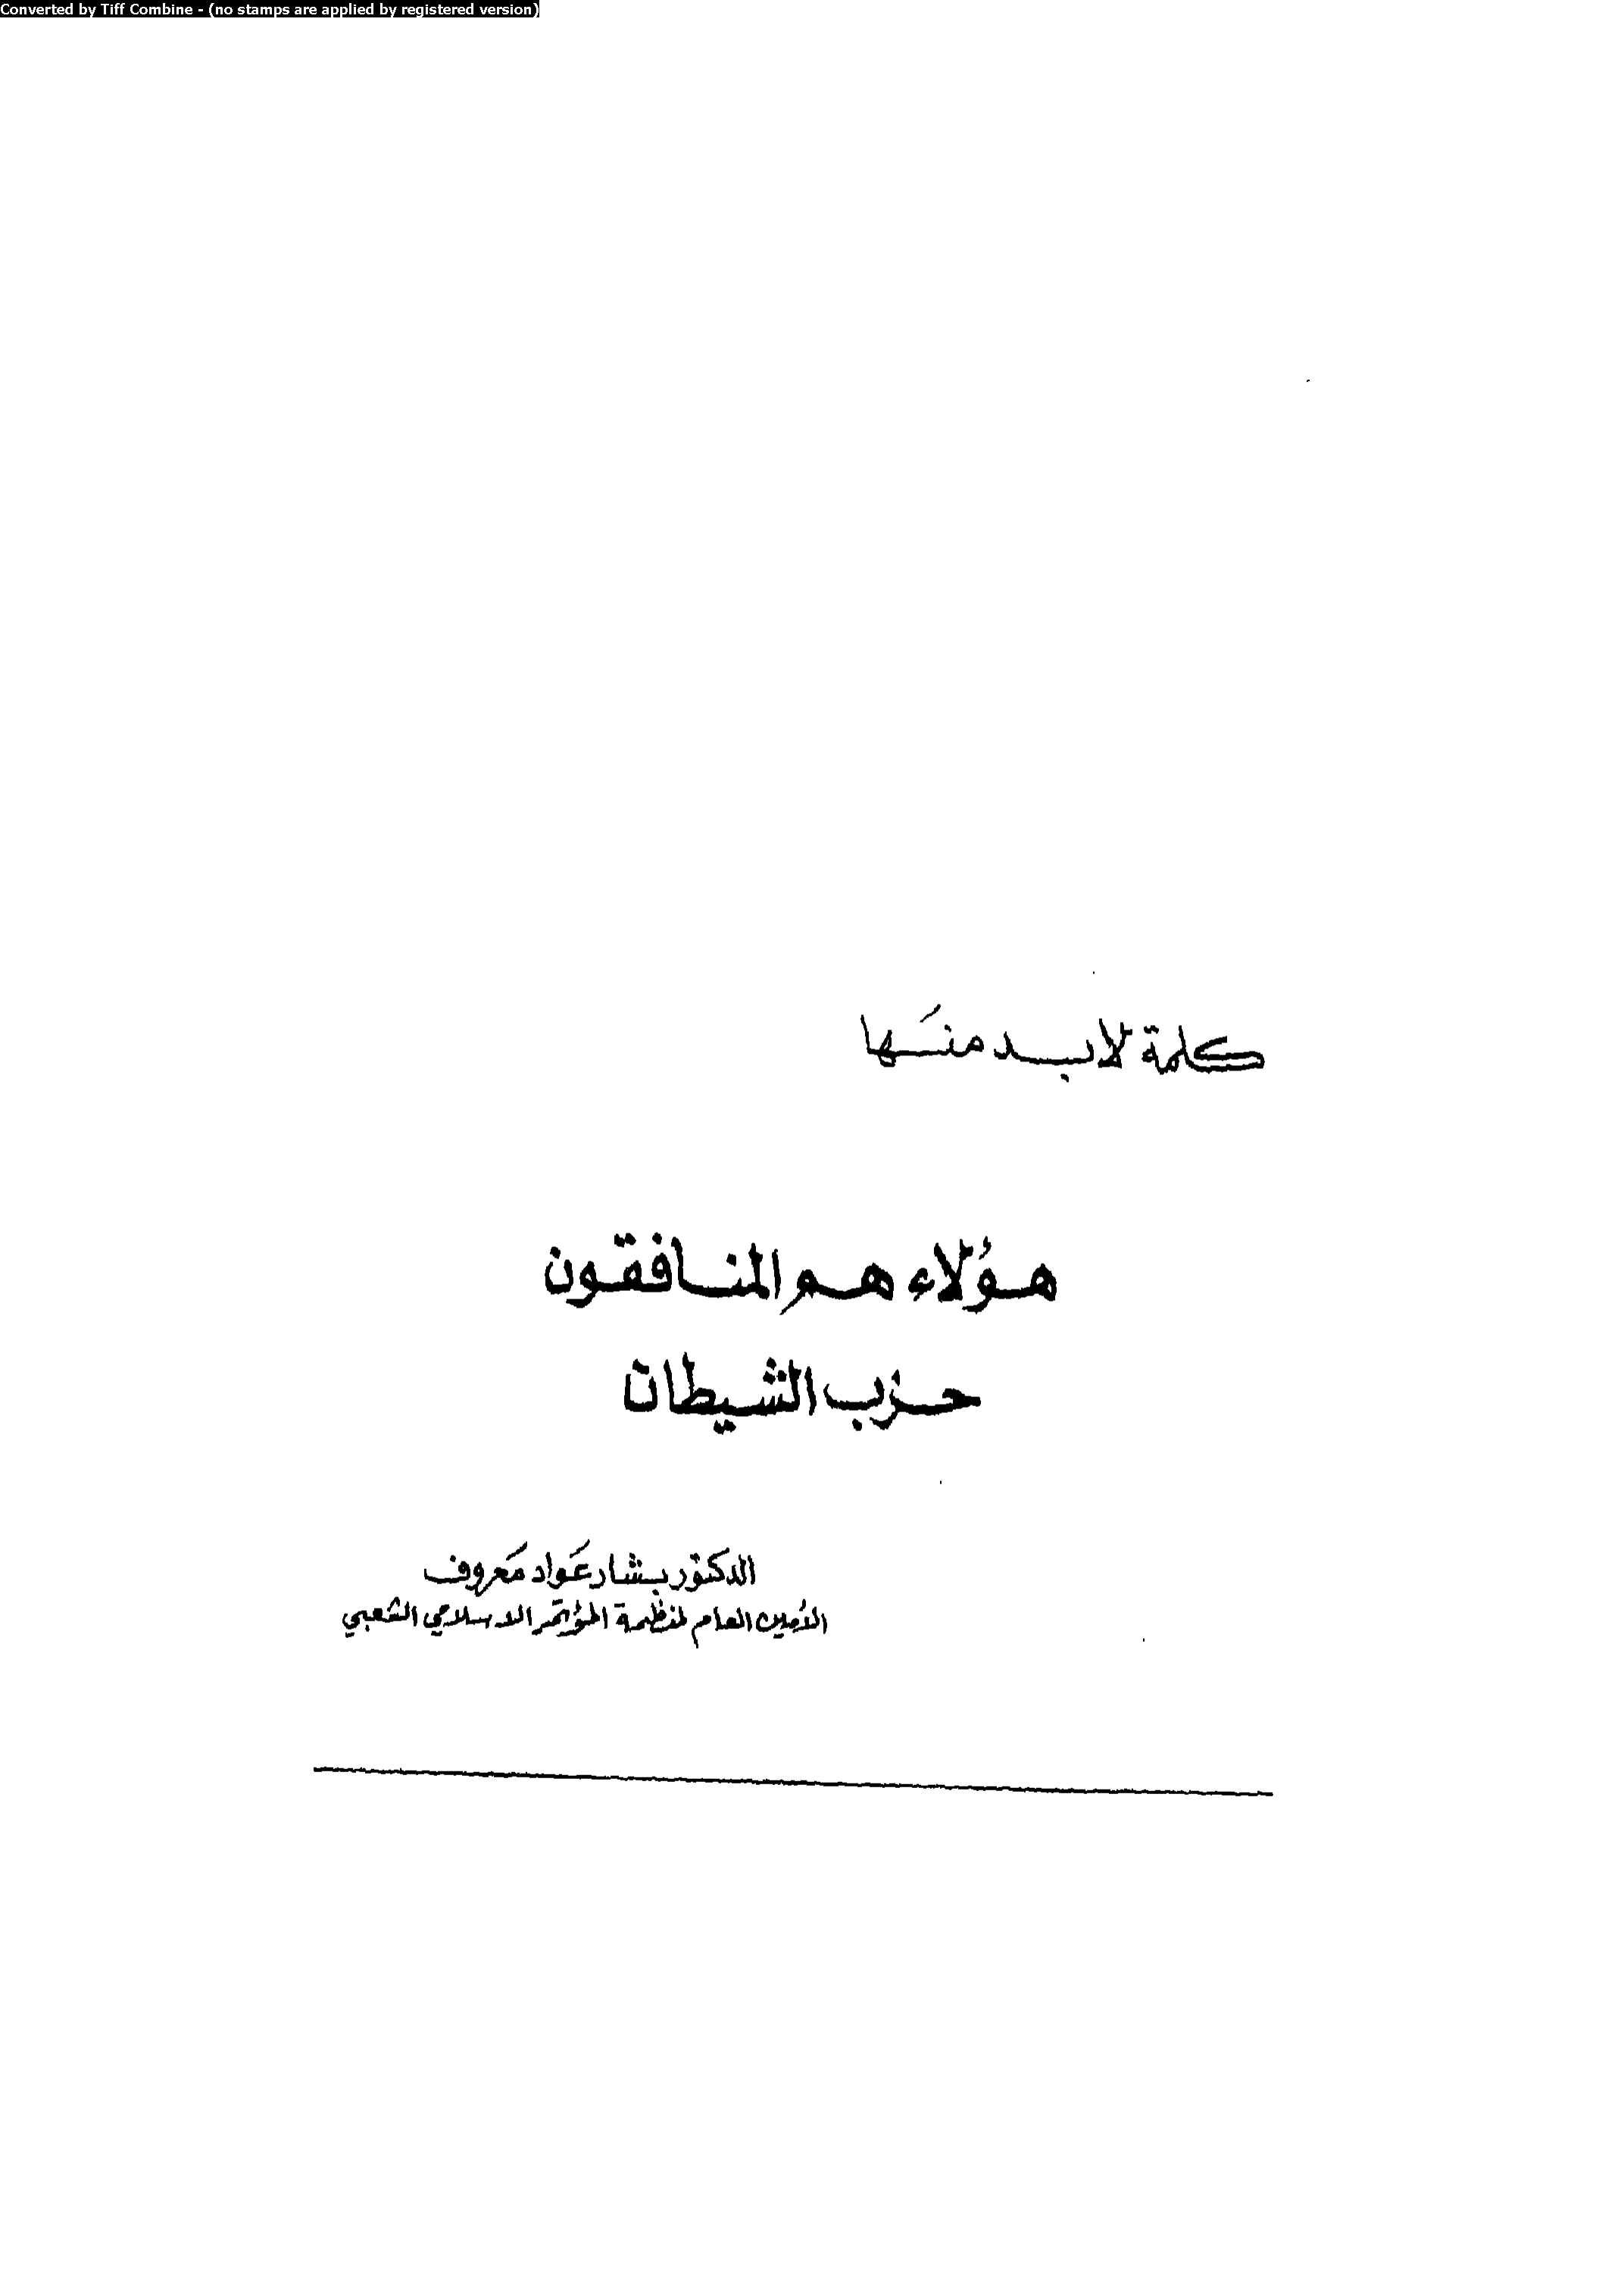 Converted by Tiff Combine - (no stamps are applied by registered version)
كلمة لابد منها
هؤلاء هم المنافقون
حزب الشيطان
الدكتور بشار عواد معروف
الأمين العام لمنظمة المؤتمر الاسلامي الشعبي